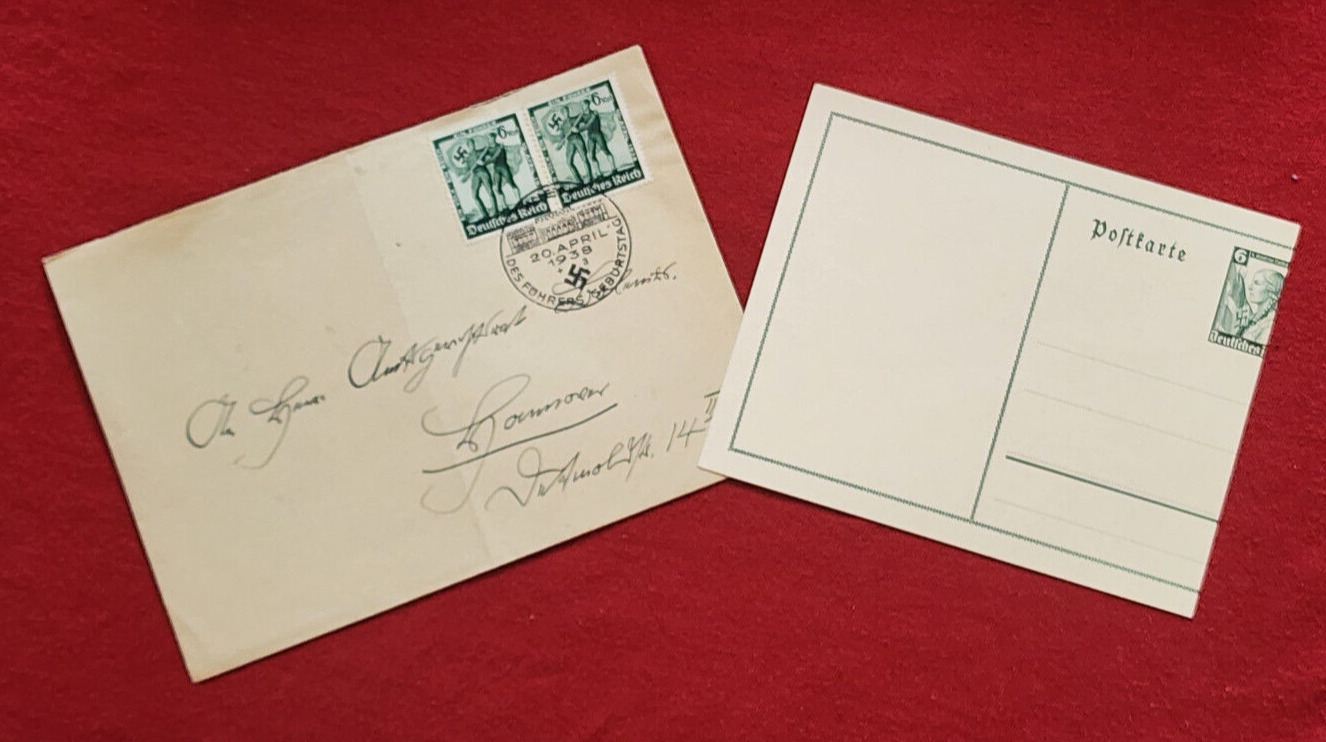 EIN FÜHRER
6 Rpf
Deutsches Reich
EIN FÜHRER
6 Rpf
Deutsches Reich
20. APRIL
1938
a
DES FÜHRERS GEBURTSTAG
An Herrn Amtsgerichtsrat
Hannover
Detmoldstr. 14 II
Postkarte
6
Deutsches